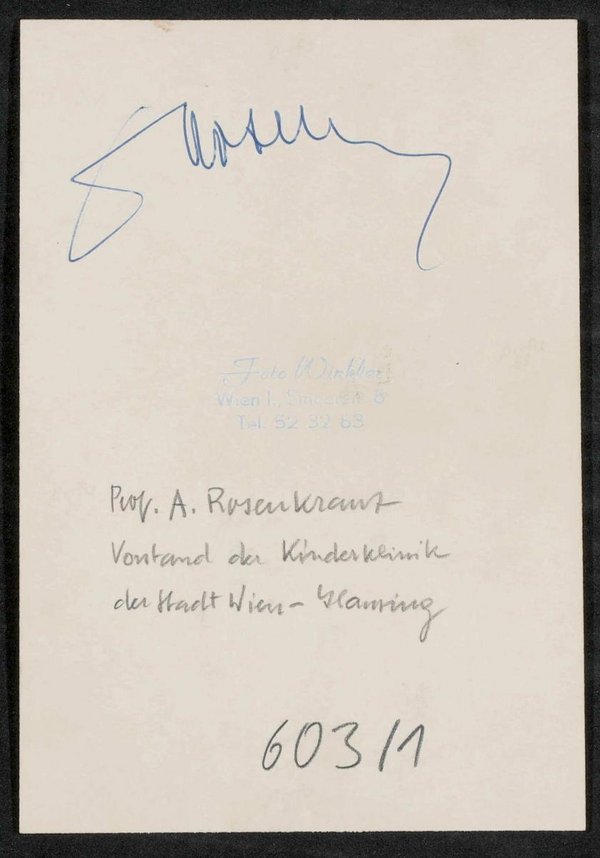 Foto Winkler
Wien I.,
Tel. 52 32 63
Prof. A. Rosenkranz
Vorstand der Kinderklinik
der Stadt Wien - Glanzing
603/1